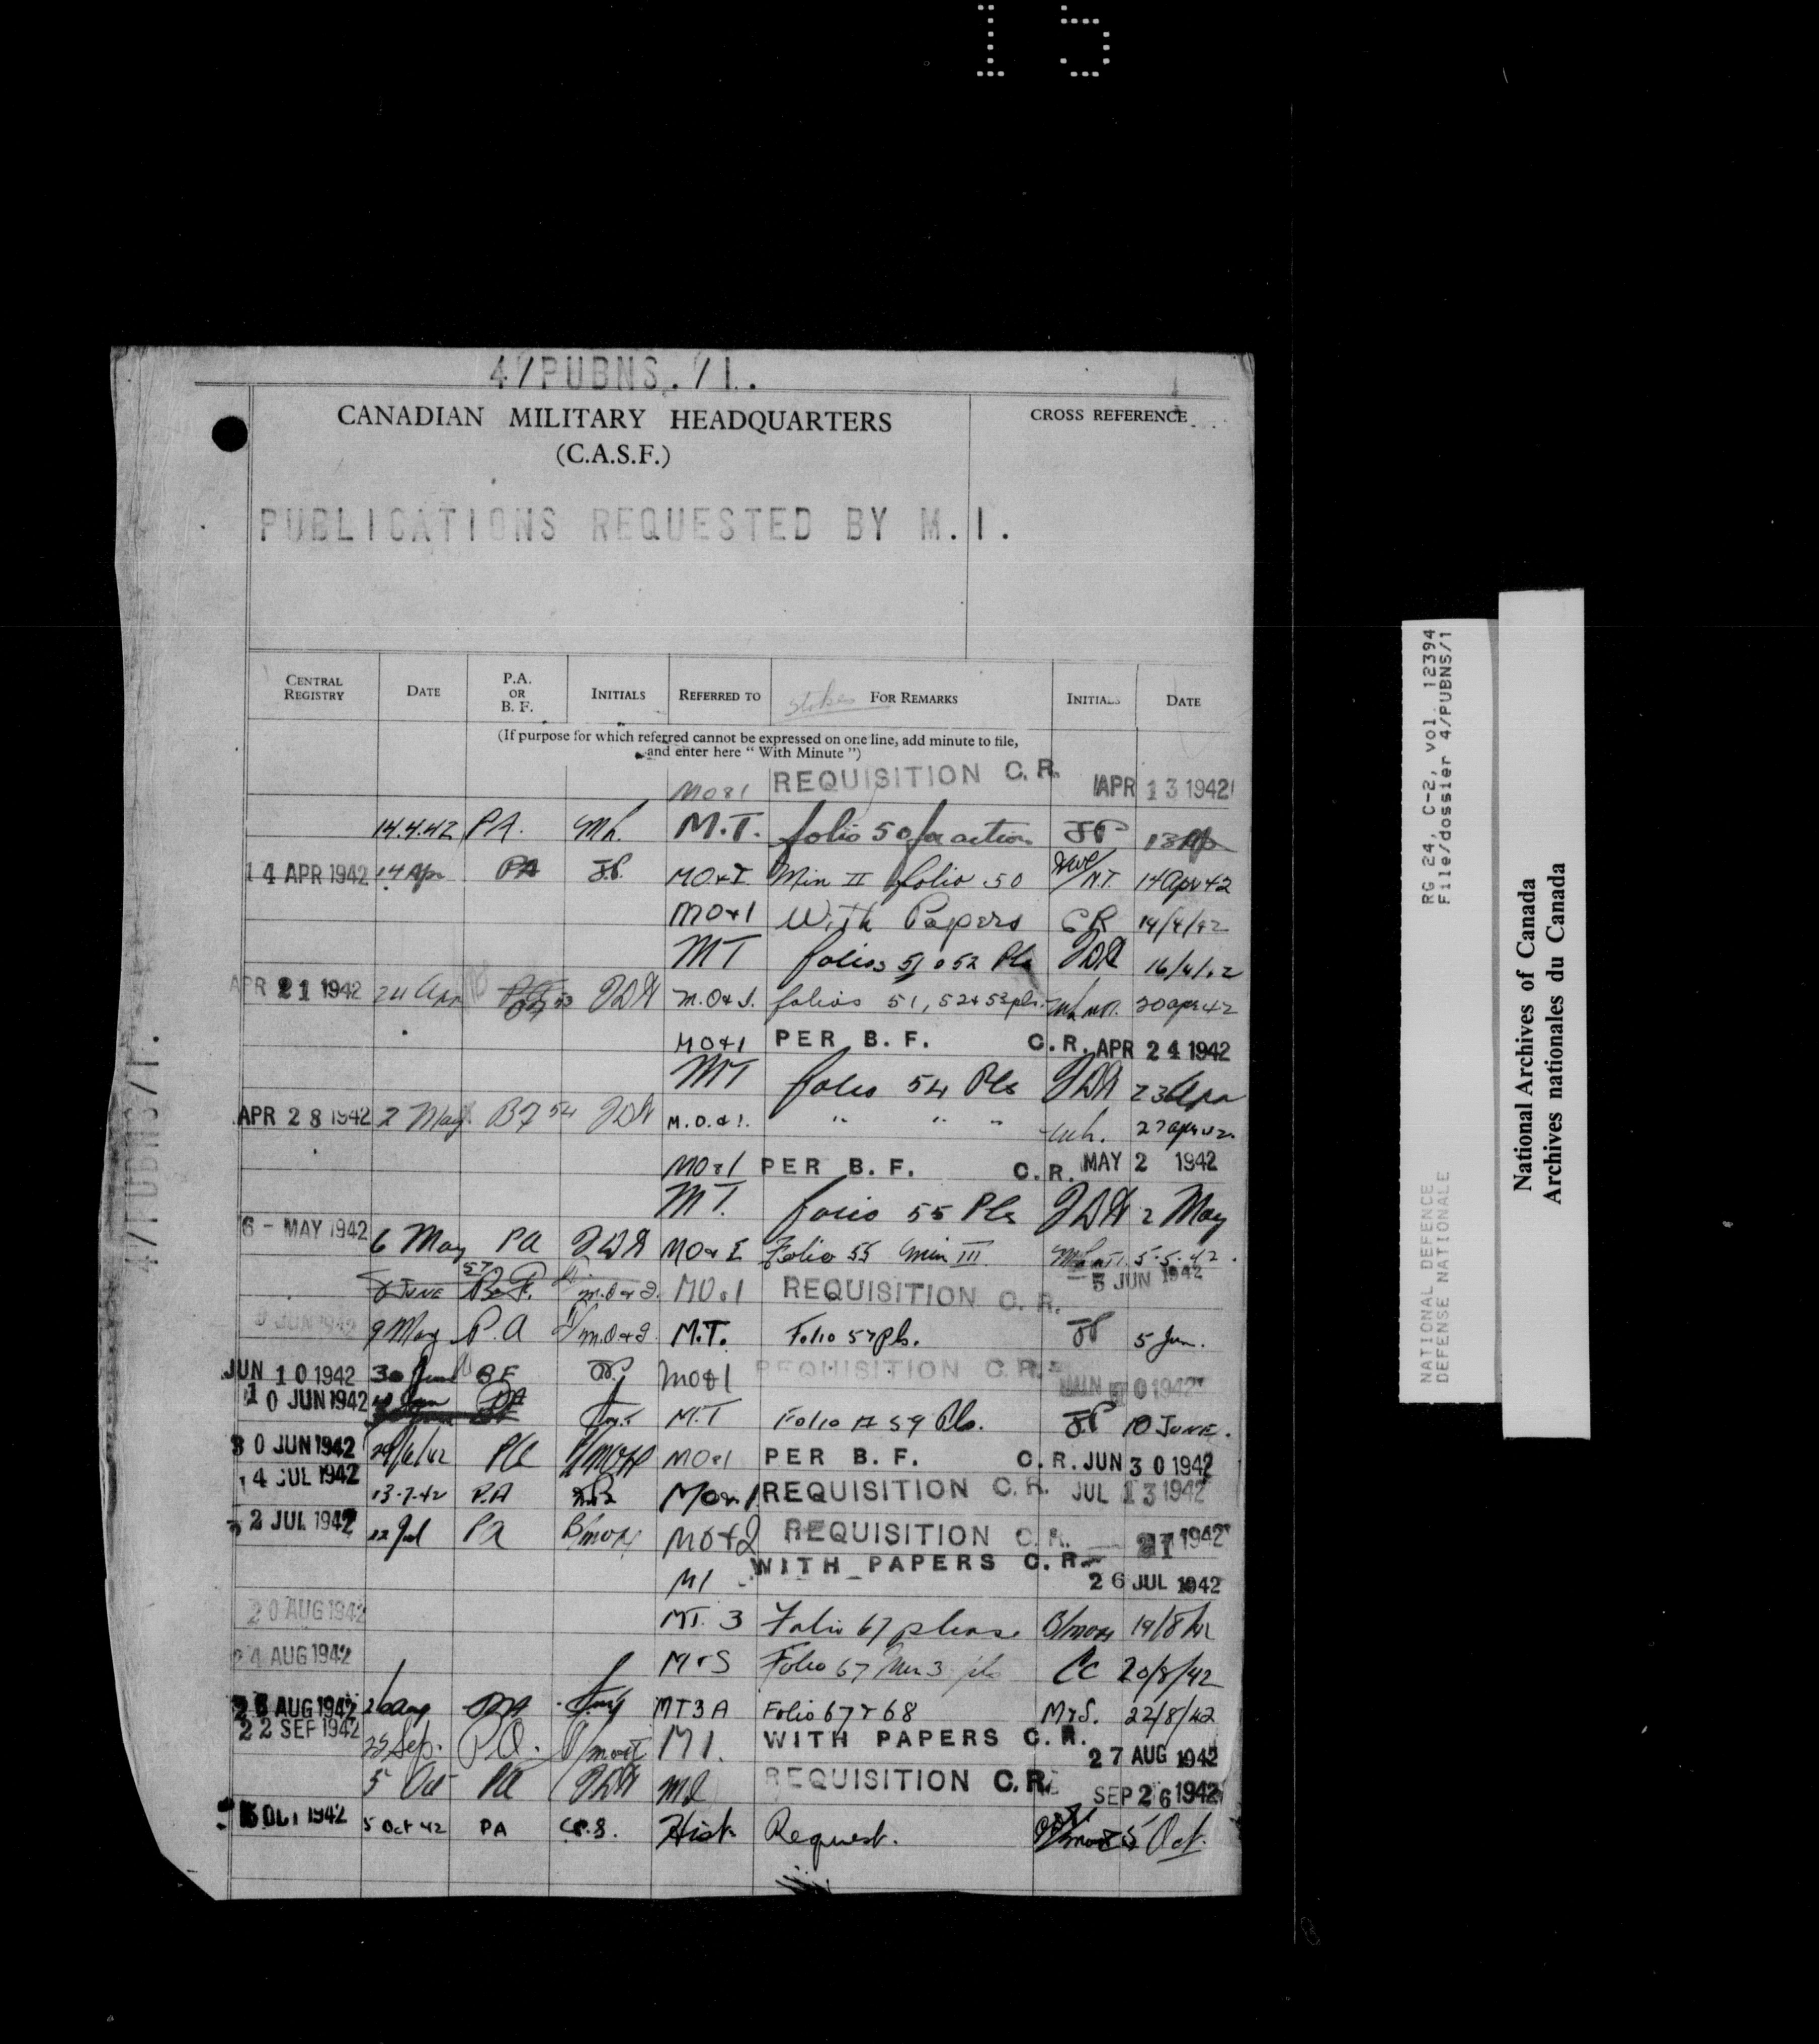 15
4/PUBNS./1.
CANADIAN MILITARY HEADQUARTERS
(C.A.S.F.)
CROSS REFERENCE
PUBLICATIONS REQUESTED BY M.I.
CENTRAL REGISTRY DATE P.A. OR B. F. INITIALS REFERRED TO FOR REMARKS INITIALS DATE
(If purpose for which referred cannot be expressed on one line, add minute to file,
and enter here “ With Minute ”)
MO&I REQUISITION C. R. APR 13 1942
14.4.42 P.A. M.T. folio 50 for action JP 13 Ap
14 APR 1942 14 Apr PA J.P. MO&I Min II folio 50 M.T. 14 Apr 42
MO&I With Papers CR 14/4/42
MT folios 51 52 Pls 16/4/42
APR 21 1942 24 Apr M.O&I. folios 51, 52 & 53 pls. 20 apr 42
MO&I PER B. F. C. R. APR 24 1942
MT folio 54 Pls 23 Apr
APR 28 1942 2 May BF 54 M.O.&I. " " " 27 apr 42
MO&I PER B. F. C. R. MAY 2 1942
MT. folio 55 Pls 2 May
6 - MAY 1942 6 May PA MO&I Folio 55 Min III 5.5.42.
8 JUNE 57 B.F. M.O&I. MO&I REQUISITION C. R. 5 JUN 1942
9 JUN 1942 9 May P.A M.O&I. M.T. Folio 57 pls. JP 5 Jun.
JUN 10 1942 30 June BF JP. MO&I REQUISITION C. R. JUN 1942
10 JUN 1942 PA M.T Folio 59 Pls. JP 10 JUNE.
30 JUN 1942 29/6/42 PA MO&I PER B. F. C. R. JUN 30 1942
14 JUL 1942 13-7-42 P.A MO&I REQUISITION C. R. JUL 13 1942
22 JUL 1942 22 Jul PA MO&I REQUISITION C. R. 21 1942
MI WITH PAPERS C. R. 26 JUL 1942
20 AUG 1942 MT. 3 Folio 67 please 19/8/42
24 AUG 1942 M&S Folio 67 Min 3 pls CC 20/8/42
26 AUG 1942 26 Aug PA MT3A Folio 67 & 68 M&S. 22/8/42
22 SEP 1942 Sep. P.A. MI. WITH PAPERS C. R. 27 AUG 1942
5 Oct PA MI REQUISITION C. R. SEP 26 1942
5 OCT 1942 5 Oct 42 PA Hist Request. 5 Oct.
4/PUBNS/1.
RG 24, C-2, vol. 12394
File/dossier 4/PUBNS/1
NATIONAL DEFENCE
DEFENSE NATIONALE
National Archives of Canada
Archives nationales du Canada